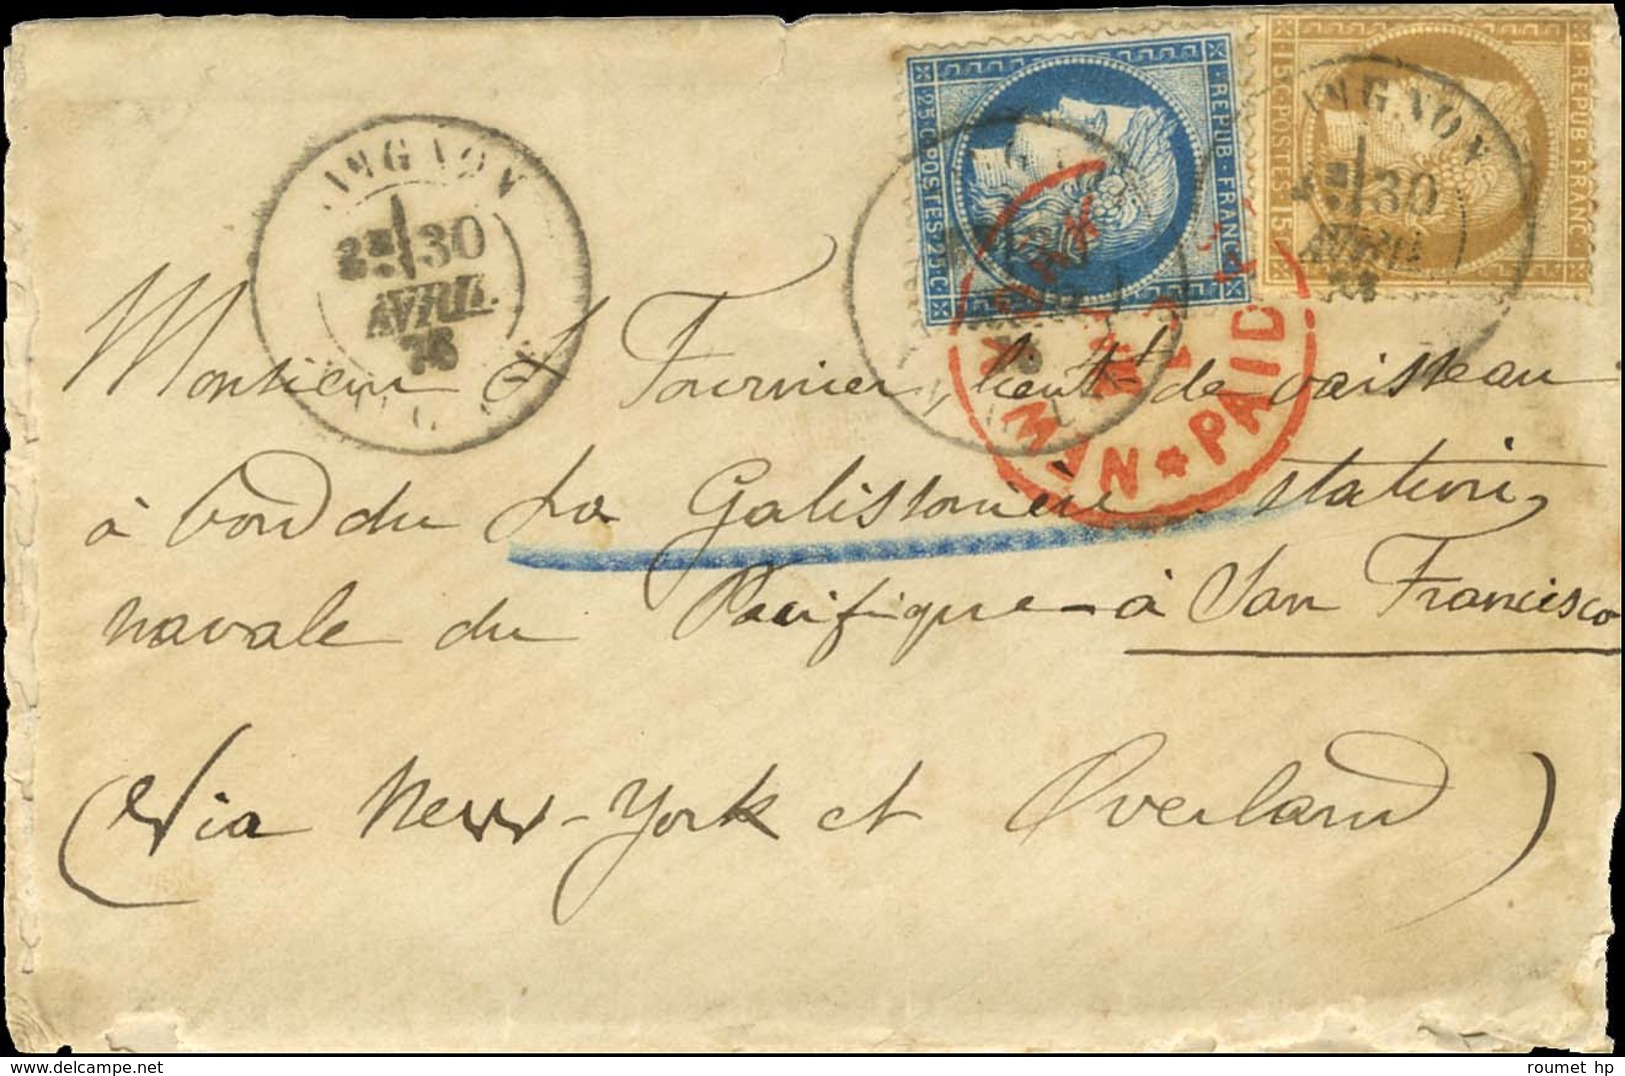 REPUB · FRANC
25 · C POSTES · 25 · C
REPUB · FRANC
15 · C POSTES 15
AVIGNON
2E 30
AVRIL
76
AVIGNON
30
AVRIL
NEW YORK
MAY
PAID
Monsieur Fournier, lieut^t de vaisseau
à bord du La Galissonière station
navale du Pacifique - à San Francisco
(Via New-York et Overland)
roumet hp